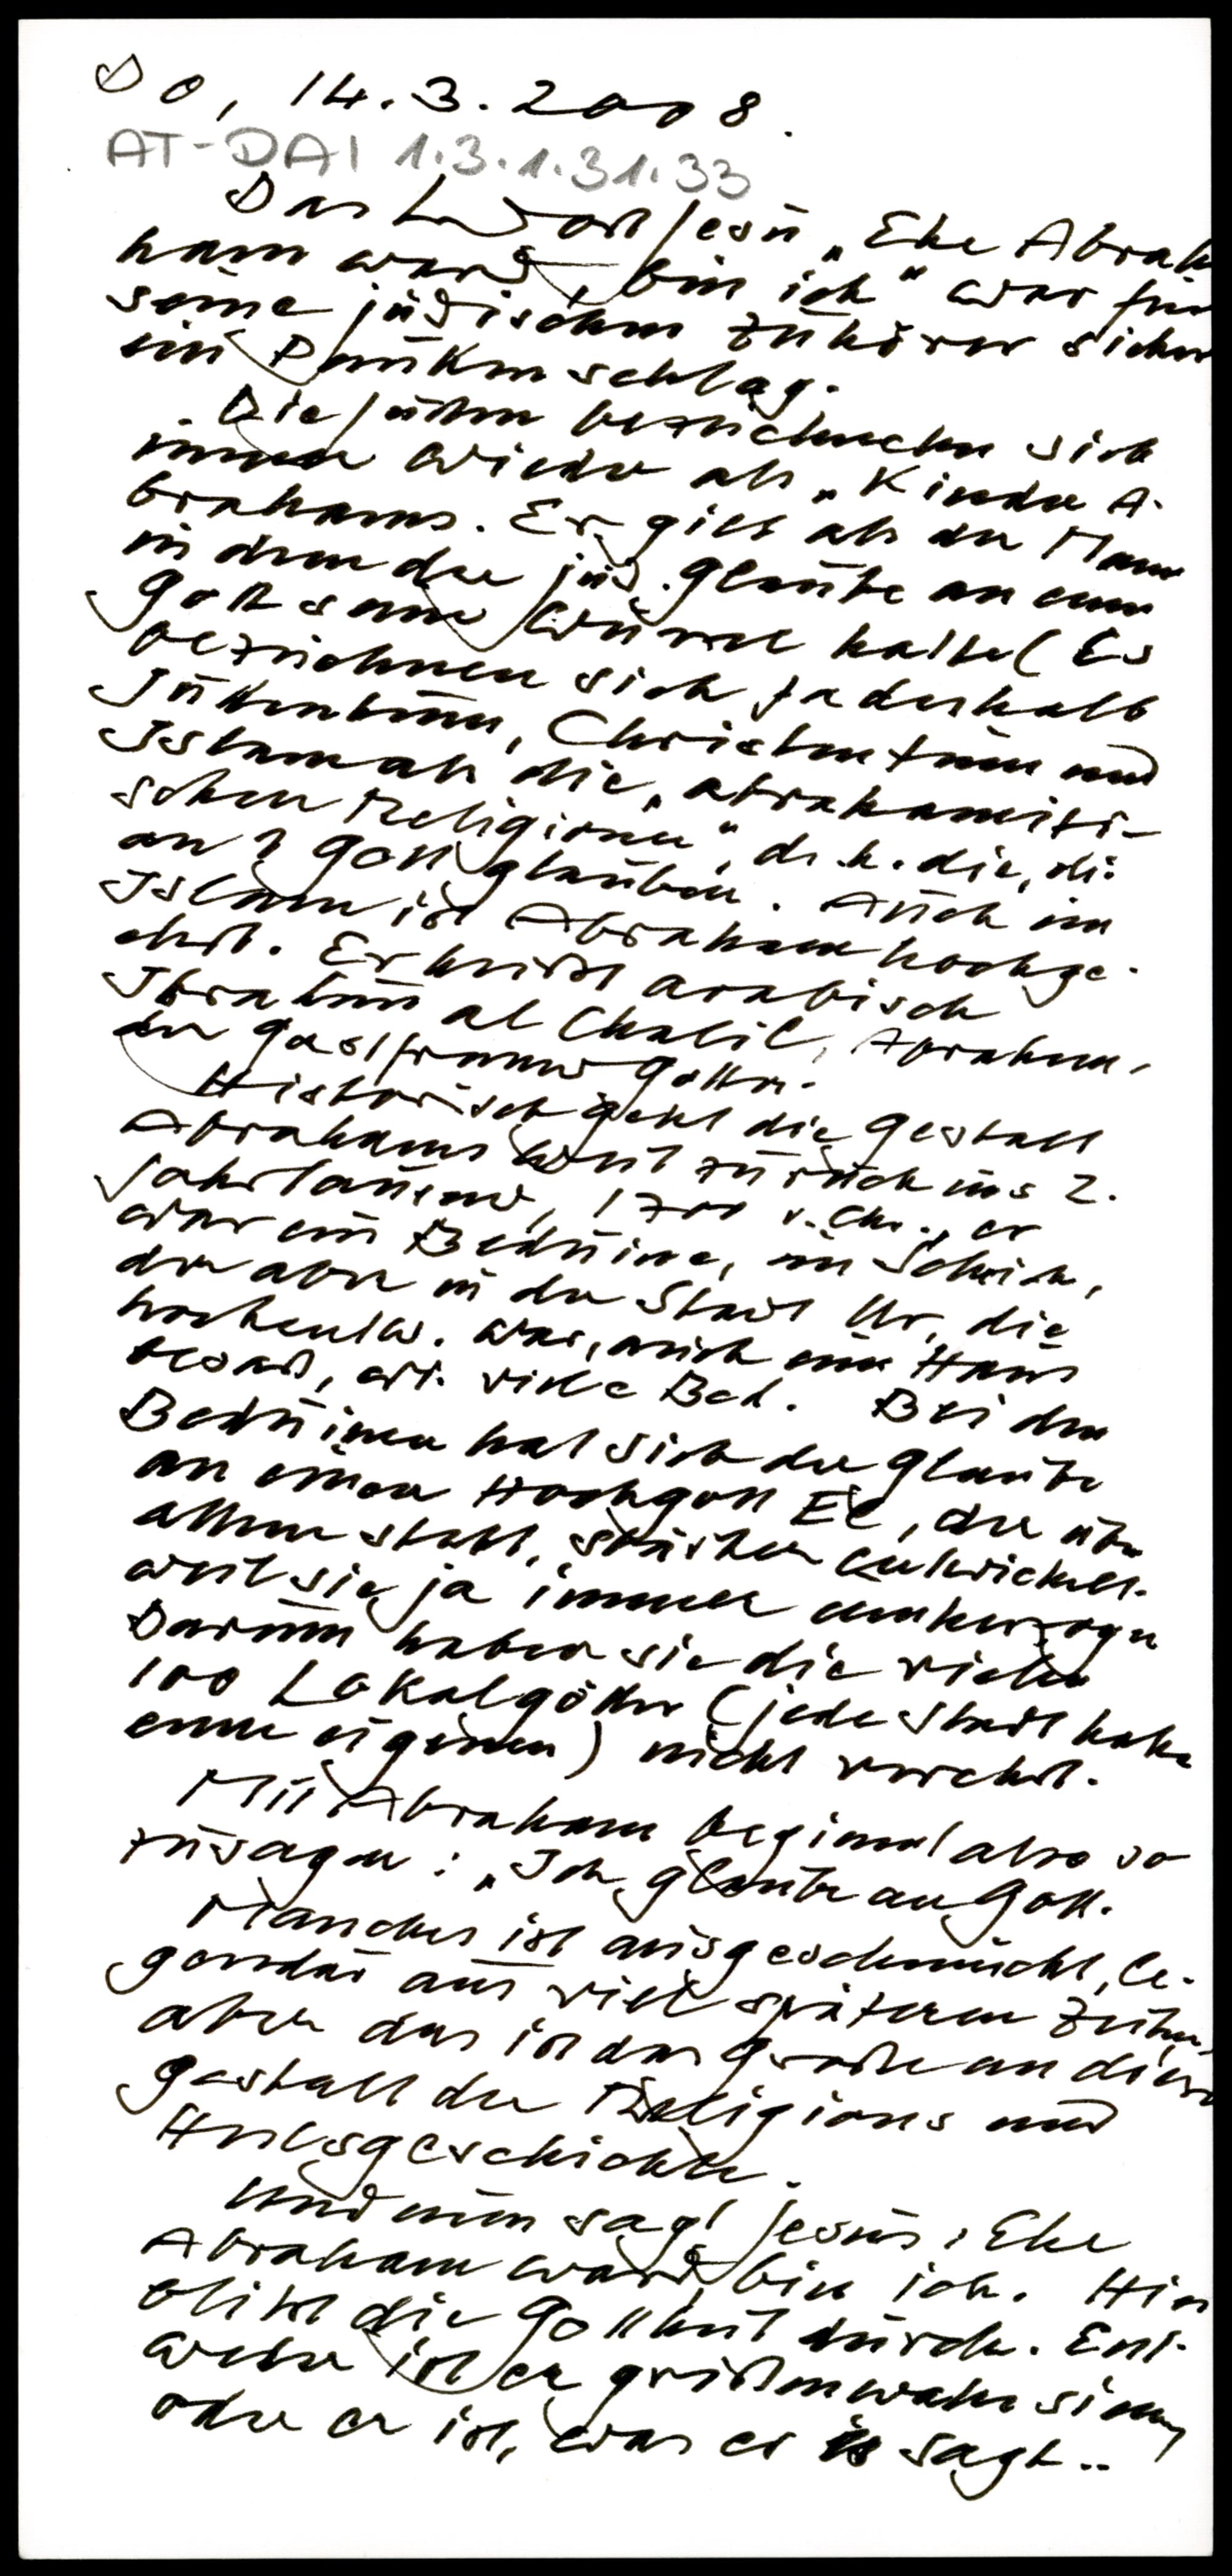 Do, 14.3.2008.
AT-DAI 1.3.1.31.33
Das Wort Jesu „Ehe Abrah
ham ward, bin ich" war für
seine jüdischen Zuhörer sicher
ein Paukenschlag.
Die Juden bezeichneten sich
immer wieder als „Kinder A-
brahams. Er gilt als der Mann
in dem der jüd. Glaube an einen
Gott seine Wurzel hatte (Es
bezeichnen sich ja deshalb
Judentum, Christentum und
Islam als die „abrahamiti-
schen Religionen", d.h. die, die
an 1 Gott glauben. Auch im
Islam ist Abraham hochge-
ehrt. Er heißt arabisch
Ibrahim al Chalil, Abraham,
der Gastfreund Gottes.
Historisch geht die Gestalt
Abrahams weit zurück ins 2.
Jahrtausend, 1700 v. Chr., er
war ein Beduine, ein Scheich,
der aber in der Stadt Ur, die
hochentw. war, auch ein Haus
besaß, wie viele Bed. Bei den
Beduinen hat sich der Glaube
an einen Hochgott El, der über
allem steht, stärker entwickelt.
weil sie ja immer umherzogen
Darum haben sie die vielen
100 Lokalgötter (jede Stadt hatte
einen eigenen) nicht verehrt.
Mit Abraham beginnt also so
zusagen: „Ich glaube an Gott.
Manches ist ausgeschmückt, le-
gendär aus viel späteren Zeiten,
aber das ist das Große an dieser
Gestalt der Religions und
Heilsgeschichte.
Und nun sagt Jesus: Ehe
Abraham ward, bin ich. Hier
blitzt die Gottheit durch. Ent-
weder ist er größenwahnsinnig
oder er ist, was er sagt..